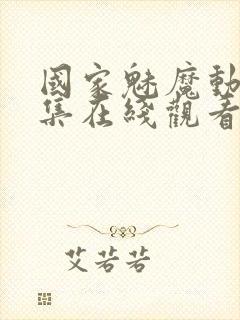 國家魅魔動
集在綫觀看
艾若若